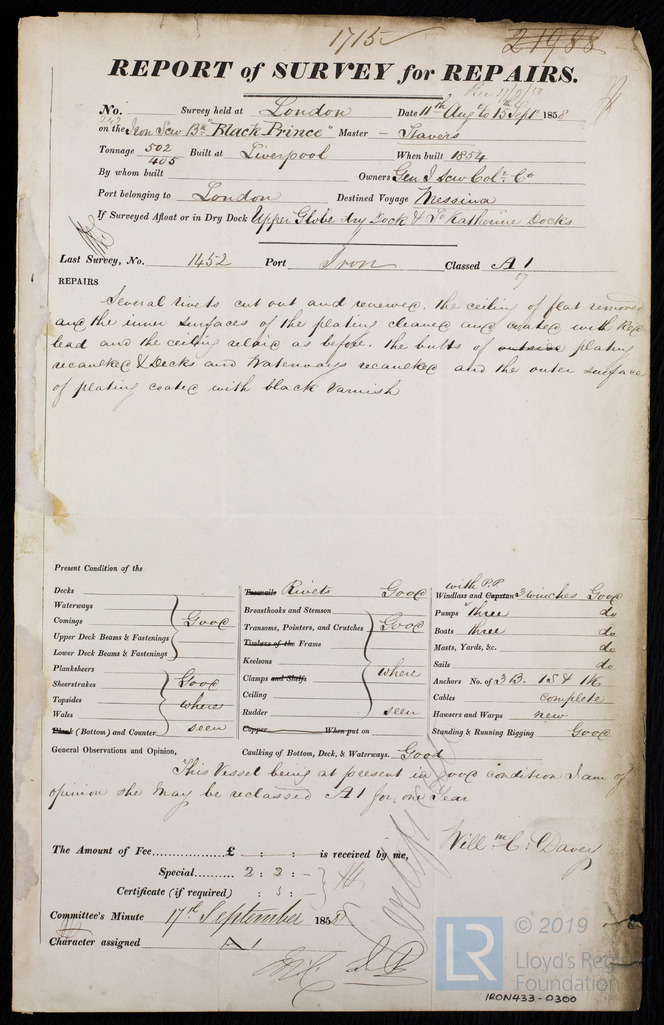 1715
21988
REPORT of SURVEY for REPAIRS.
Rec 17/9/58
No. 242 Survey held at London Date 11th Aug to 15th Septr 1858
on the Iron Scw Bk "Black Prince" Master - Stavers
Tonnage 502 / 405 Built at Liverpool When built 1854
By whom built Owners Genl Scw Colr Co
Port belonging to London Destined Voyage Messina
If Surveyed Afloat or in Dry Dock Upper Globe dry Dock & St Katherine Docks
Last Survey, No. 1452 Port Iron Classed A1
57
REPAIRS
Several rivets cut out and renewed. the ceiling of flat removed
and the inner surfaces of the plating cleaned and coated with Red
lead and the ceiling relaid as before. the butts of outside plating
recaulked & Decks and Waterways recaulked and the outer surface
of plating coated with black varnish
Present Condition of the
Decks
Waterways
Comings Good
Upper Deck Beams & Fastenings
Lower Deck Beams & Fastenings
Planksheers
Sheerstrakes Good
Topsides where
Wales
Plank (Bottom) and Counter seen
Treenails Rivets Good
Breasthooks and Stemson
Transoms, Pointers, and Crutches Good
Timbers of the Frame
Keelsons
Clamps and Shelfs where
Ceiling
Rudder seen
Copper When put on
with P.P.
Windlass and Capstan 3 winches Good
Pumps three do
Boats three do
Masts, Yards, &c. do
Sails do
Anchors No. of 3B. 1S & 1K
Cables complete
Hawsers and Warps new
Standing & Running Rigging Good
General Observations and Opinion, Caulking of Bottom, Deck, & Waterways. Good
This Vessel being at present in good condition I am of
opinion she may be reclassed A1 for one Year
Willm C. Davey
The Amount of Fee £ : : is received by me,
Special 2 : 2 : -
Certificate (if required) : 5 : -
Committee's Minute 17th September 1858
Character assigned A1
© 2019
LR
Lloyd's Register
Foundation
IRON433-0300